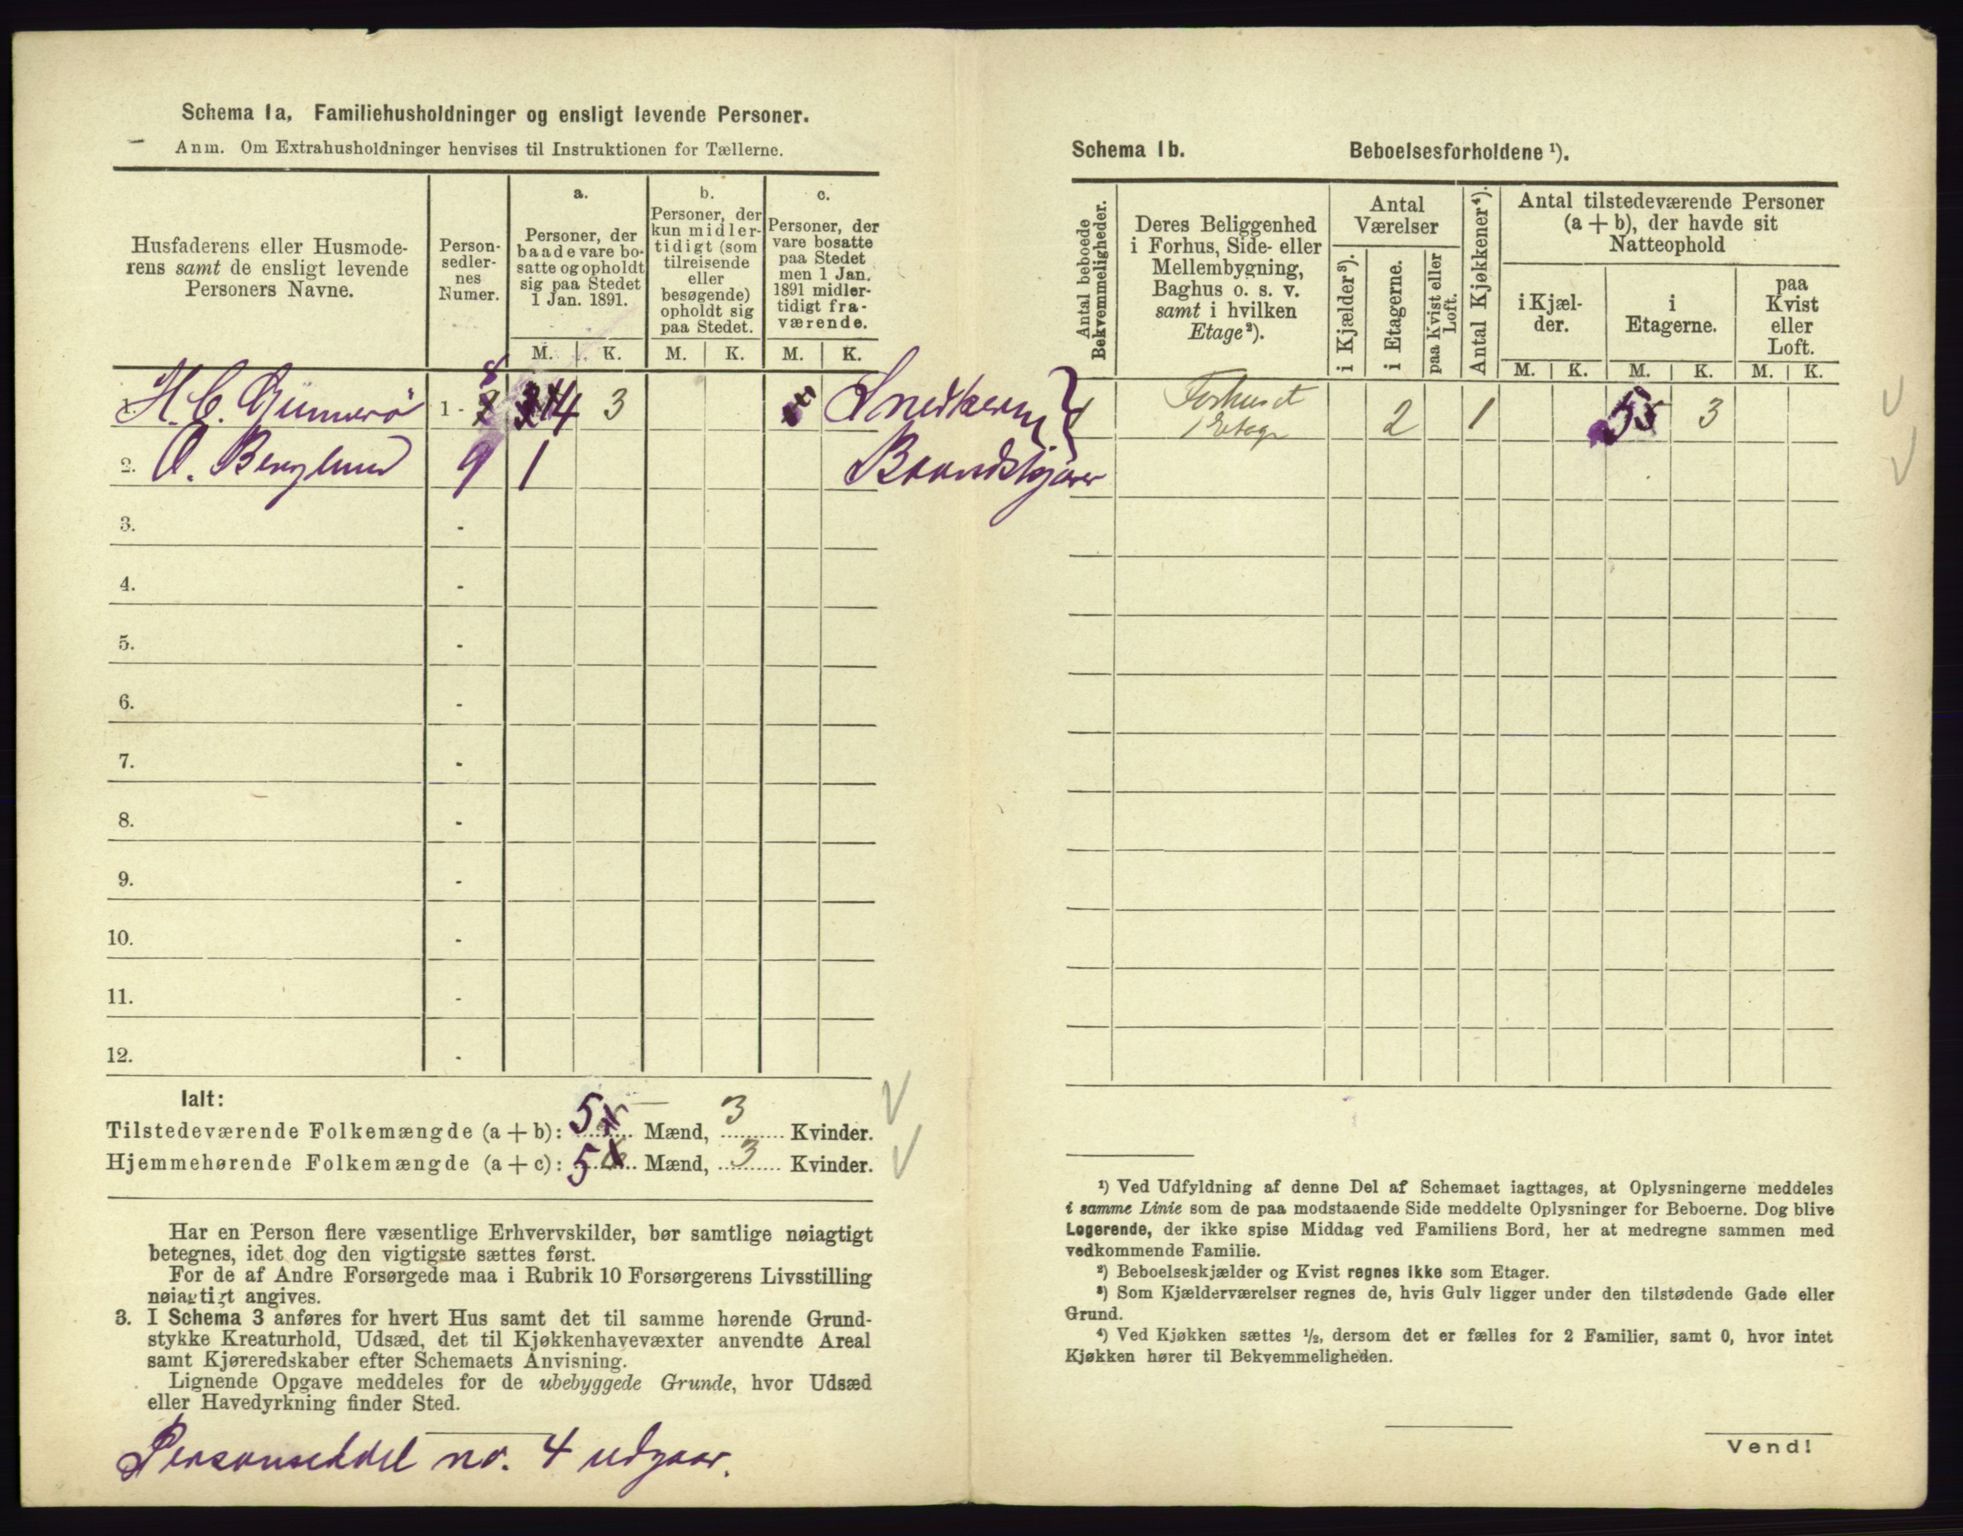 Schema 1a, Familiehusholdninger og ensligt levende Personer.
Anm. Om Extrahusholdninger henvises til Instruktionen for Tællerne.
Husfaderens eller Husmode-
rens samt de ensligt levende
Personers Navne.
Person-
sedler-
nes
Numer.
a.
Personer, der
baade vare bo-
satte og opholdt
sig paa Stedet
1 Jan. 1891.
b.
Personer, der
kun midler-
tidigt (som
tilreisende
eller
besøgende)
opholdt sig
paa Stedet.
c.
Personer, der
vare bosatte
paa Stedet
men 1 Jan.
1891 midler-
tidigt fra-
værende.
M. K. M. K. M. K.
1. H. C. Gunnerö 1 - 8 4 3 Snedkerm
2. O. Berglund 9 1 Brandskjærer
3. -
4. -
5. -
6. -
7. -
8. -
9. -
10. -
11. -
12. -
Ialt:
Tilstedeværende Folkemængde (a + b): 5 Mænd, 3 Kvinder.
Hjemmehørende Folkemængde (a + c): 5 Mænd, 3 Kvinder.
Har en Person flere væsentlige Erhvervskilder, bør samtlige nøiagtigt
betegnes, idet dog den vigtigste sættes først.
For de af Andre Forsørgede maa i Rubrik 10 Forsørgerens Livsstilling
nøiagtigt angives.
3. I Schema 3 anføres for hvert Hus samt det til samme hørende Grund-
stykke Kreaturhold, Udsæd, det til Kjøkkenhavevæxter anvendte Areal
samt Kjøreredskaber efter Schemaets Anvisning.
Lignende Opgave meddeles for de ubebyggede Grunde, hvor Udsæd
eller Havedyrkning finder Sted.
Personseddel no. 4 udgaar.
Schema 1b. Beboelsesforholdene ¹).
Antal beboede
Bekvemmeligheder.
Deres Beliggenhed
i Forhus, Side- eller
Mellembygning,
Baghus o. s. v.
samt i hvilken
Etage²).
Antal
Værelser
i Kjælder³).
i Etagerne.
paa Kvist eller
Loft.
Antal Kjøkkener⁴).
Antal tilstedeværende Personer
(a + b), der havde sit
Natteophold
i Kjæl-
der.
i
Etagerne.
paa
Kvist
eller
Loft.
M. K. M. K. M. K.
1 Forhuset 2 1 5 3
1 Etage
¹) Ved Udfyldning af denne Del af Schemaet iagttages, at Oplysningerne meddeles
i samme Linie som de paa modstaaende Side meddelte Oplysninger for Beboerne. Dog blive
Logerende, der ikke spise Middag ved Familiens Bord, her at medregne sammen med
vedkommende Familie.
²) Beboelseskjælder og Kvist regnes ikke som Etager.
³) Som Kjælderværelser regnes de, hvis Gulv ligger under den tilstødende Gade eller
Grund.
⁴) Ved Kjøkken sættes ½, dersom det er fælles for 2 Familier, samt 0, hvor intet
Kjøkken hører til Bekvemmeligheden.
Vend!